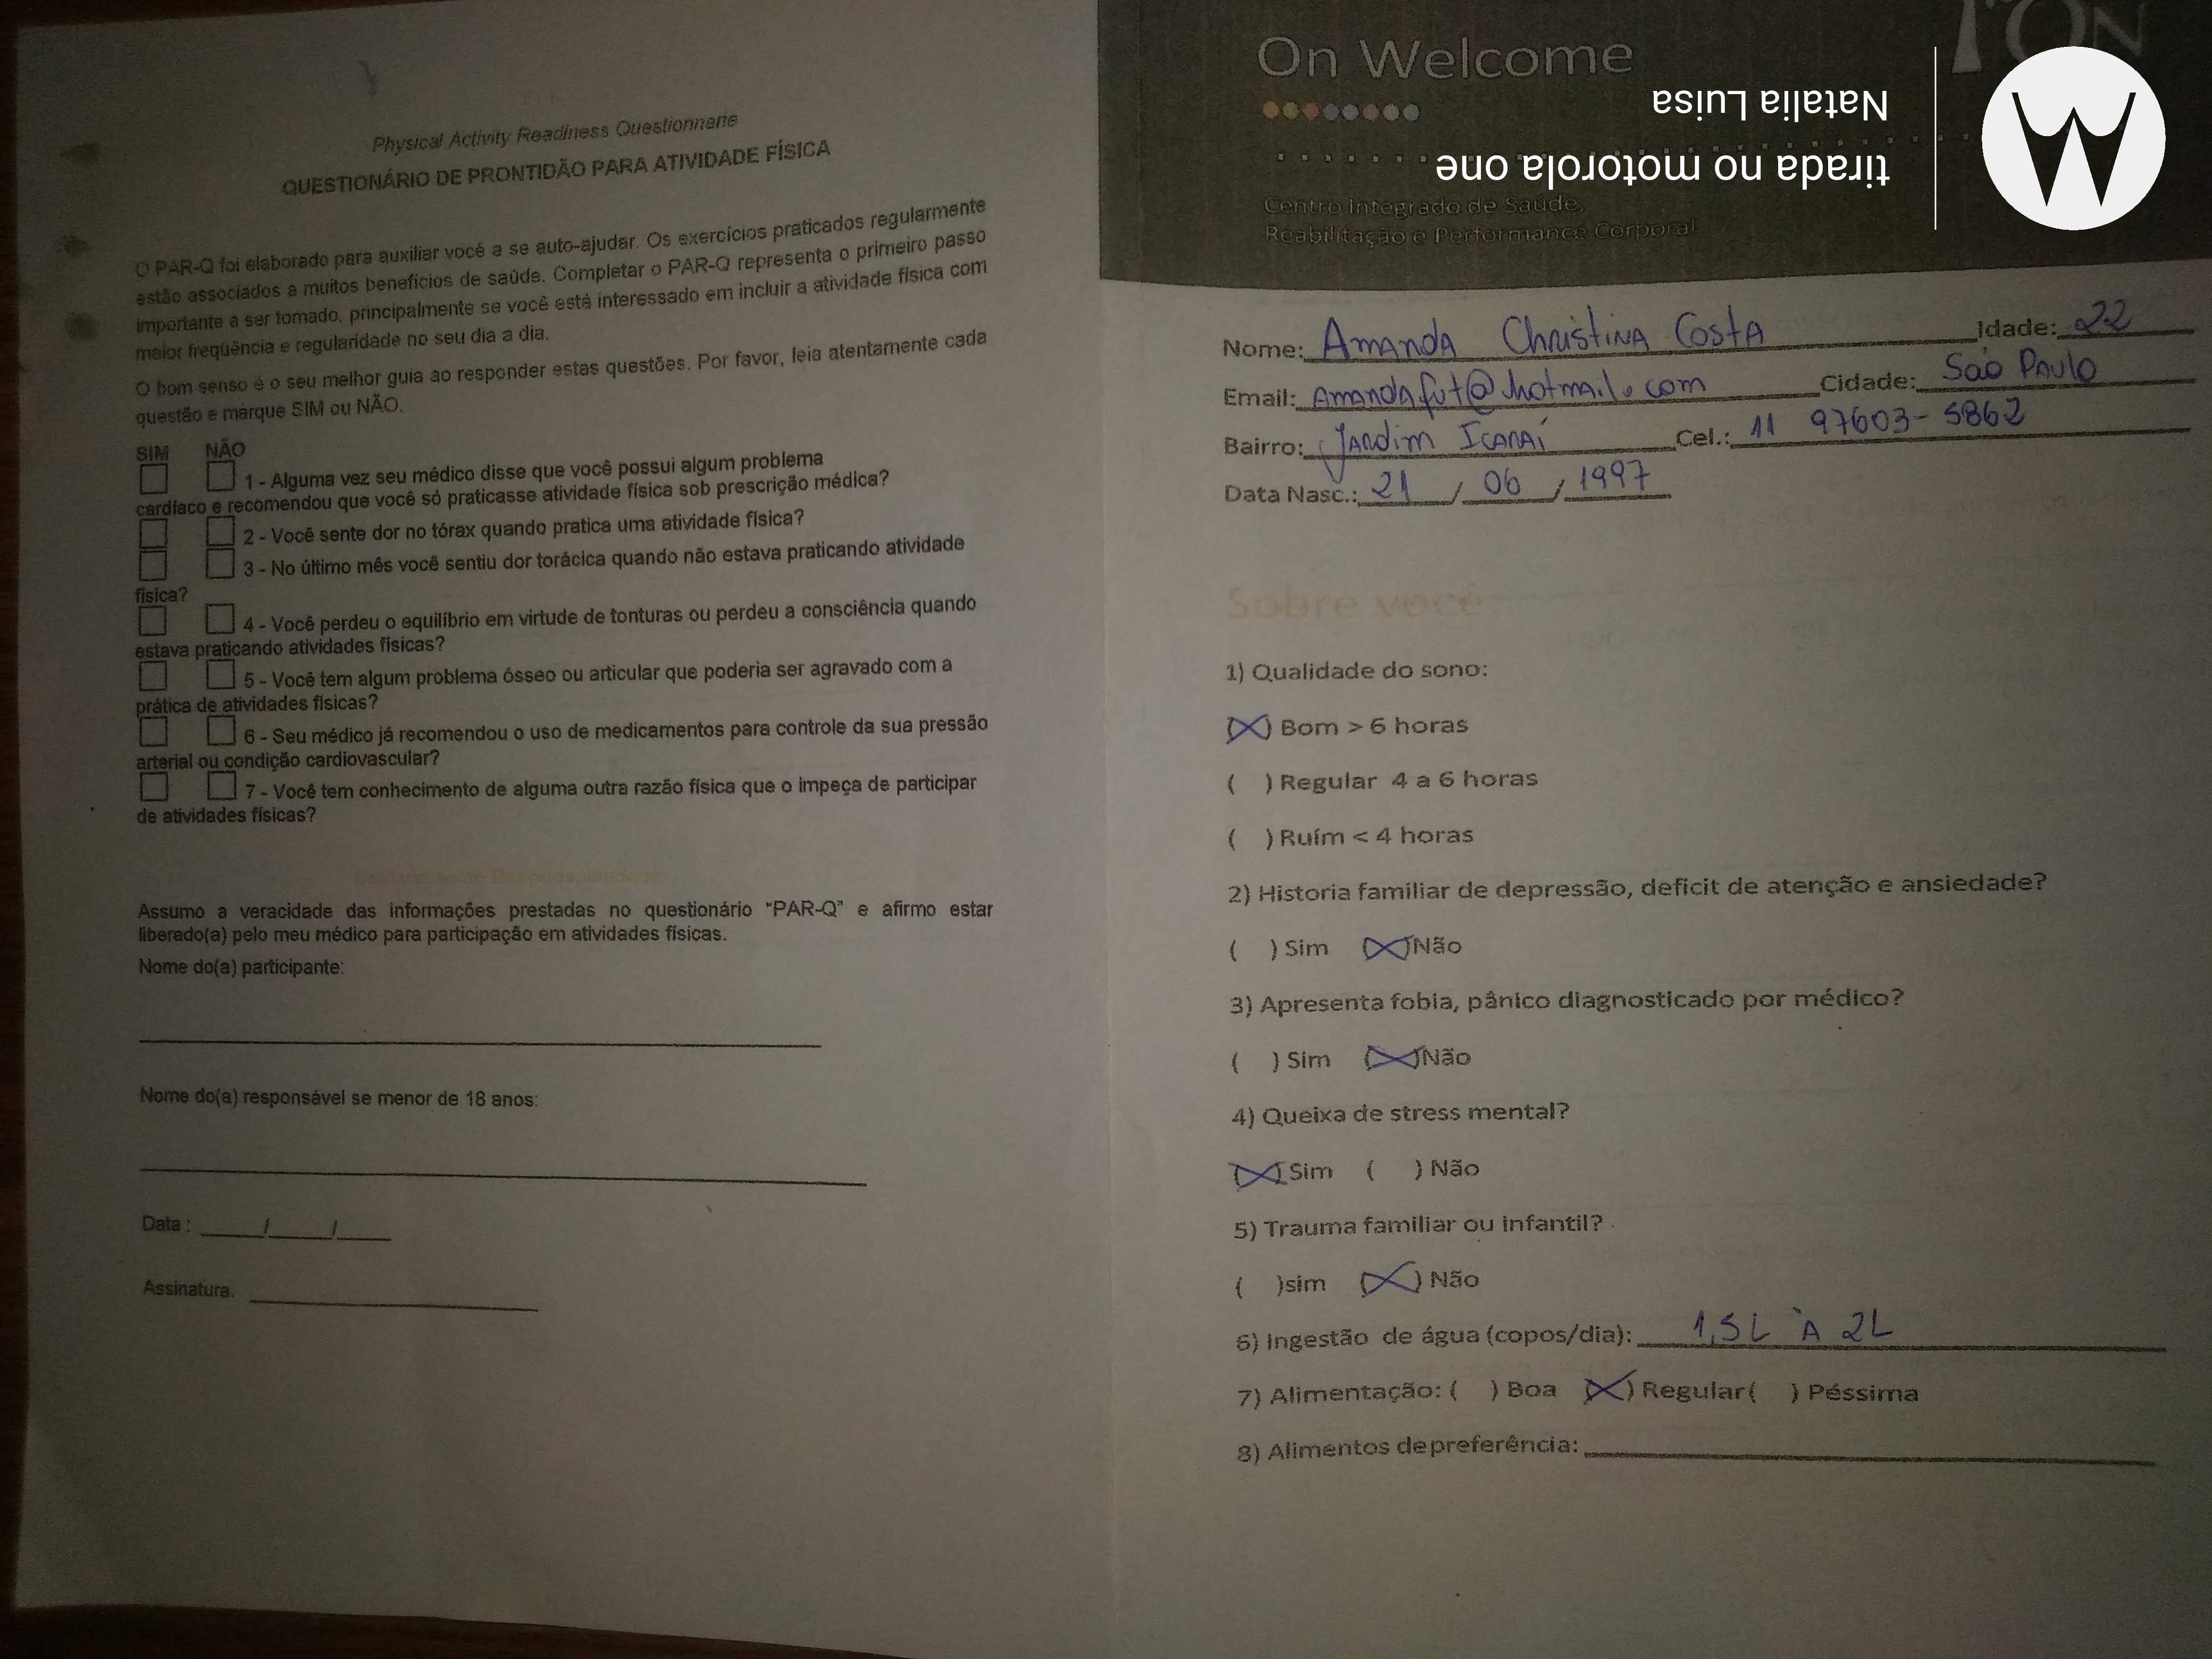 Physical Activity Readiness Questionnaire
QUESTIONÁRIO DE PRONTIDÃO PARA ATIVIDADE FÍSICA
O PAR-Q foi elaborado para auxiliar você a se auto-ajudar. Os exercícios praticados regularmente
estão associados a muitos benefícios de saúde. Completar o PAR-Q representa o primeiro passo
importante a ser tomado, principalmente se você está interessado em incluir a atividade física com
maior frequência e regularidade no seu dia a dia.
O bom senso é o seu melhor guia ao responder estas questões. Por favor, leia atentamente cada
questão e marque SIM ou NÃO.
SIM NÃO
1 - Alguma vez seu médico disse que você possui algum problema
cardíaco e recomendou que você só praticasse atividade física sob prescrição médica?
2 - Você sente dor no tórax quando pratica uma atividade física?
3 - No último mês você sentiu dor torácica quando não estava praticando atividade
física?
4 - Você perdeu o equilíbrio em virtude de tonturas ou perdeu a consciência quando
estava praticando atividades físicas?
5 - Você tem algum problema ósseo ou articular que poderia ser agravado com a
prática de atividades físicas?
6 - Seu médico já recomendou o uso de medicamentos para controle da sua pressão
arterial ou condição cardiovascular?
7 - Você tem conhecimento de alguma outra razão física que o impeça de participar
de atividades físicas?
Assumo a veracidade das informações prestadas no questionário "PAR-Q" e afirmo estar
liberado(a) pelo meu médico para participação em atividades físicas.
Nome do(a) participante:
Nome do(a) responsável se menor de 18 anos:
Data : ____/____/____
Assinatura:
On Welcome
!ON
Centro Integrado de Saúde,
Reabilitação e Performance Corporal
Nome: Amanda Christina Costa Idade: 22
Email: Amanda.fut@hotmail.com Cidade: São Paulo
Bairro: Jardim Icaraí Cel.: 11 97603-5862
Data Nasc.: 21 / 06 / 1997
Sobre você
1) Qualidade do sono:
(X) Bom > 6 horas
( ) Regular 4 a 6 horas
( ) Ruim < 4 horas
2) Historia familiar de depressão, deficit de atenção e ansiedade?
( ) Sim (X) Não
3) Apresenta fobia, pânico diagnosticado por médico?
( ) Sim (X) Não
4) Queixa de stress mental?
(X) Sim ( ) Não
5) Trauma familiar ou infantil?
( )sim (X) Não
6) Ingestão de água (copos/dia): 1,5L à 2L
7) Alimentação: ( ) Boa (X) Regular ( ) Péssima
8) Alimentos de preferência:
tirada no motorola one
Natalia Luisa